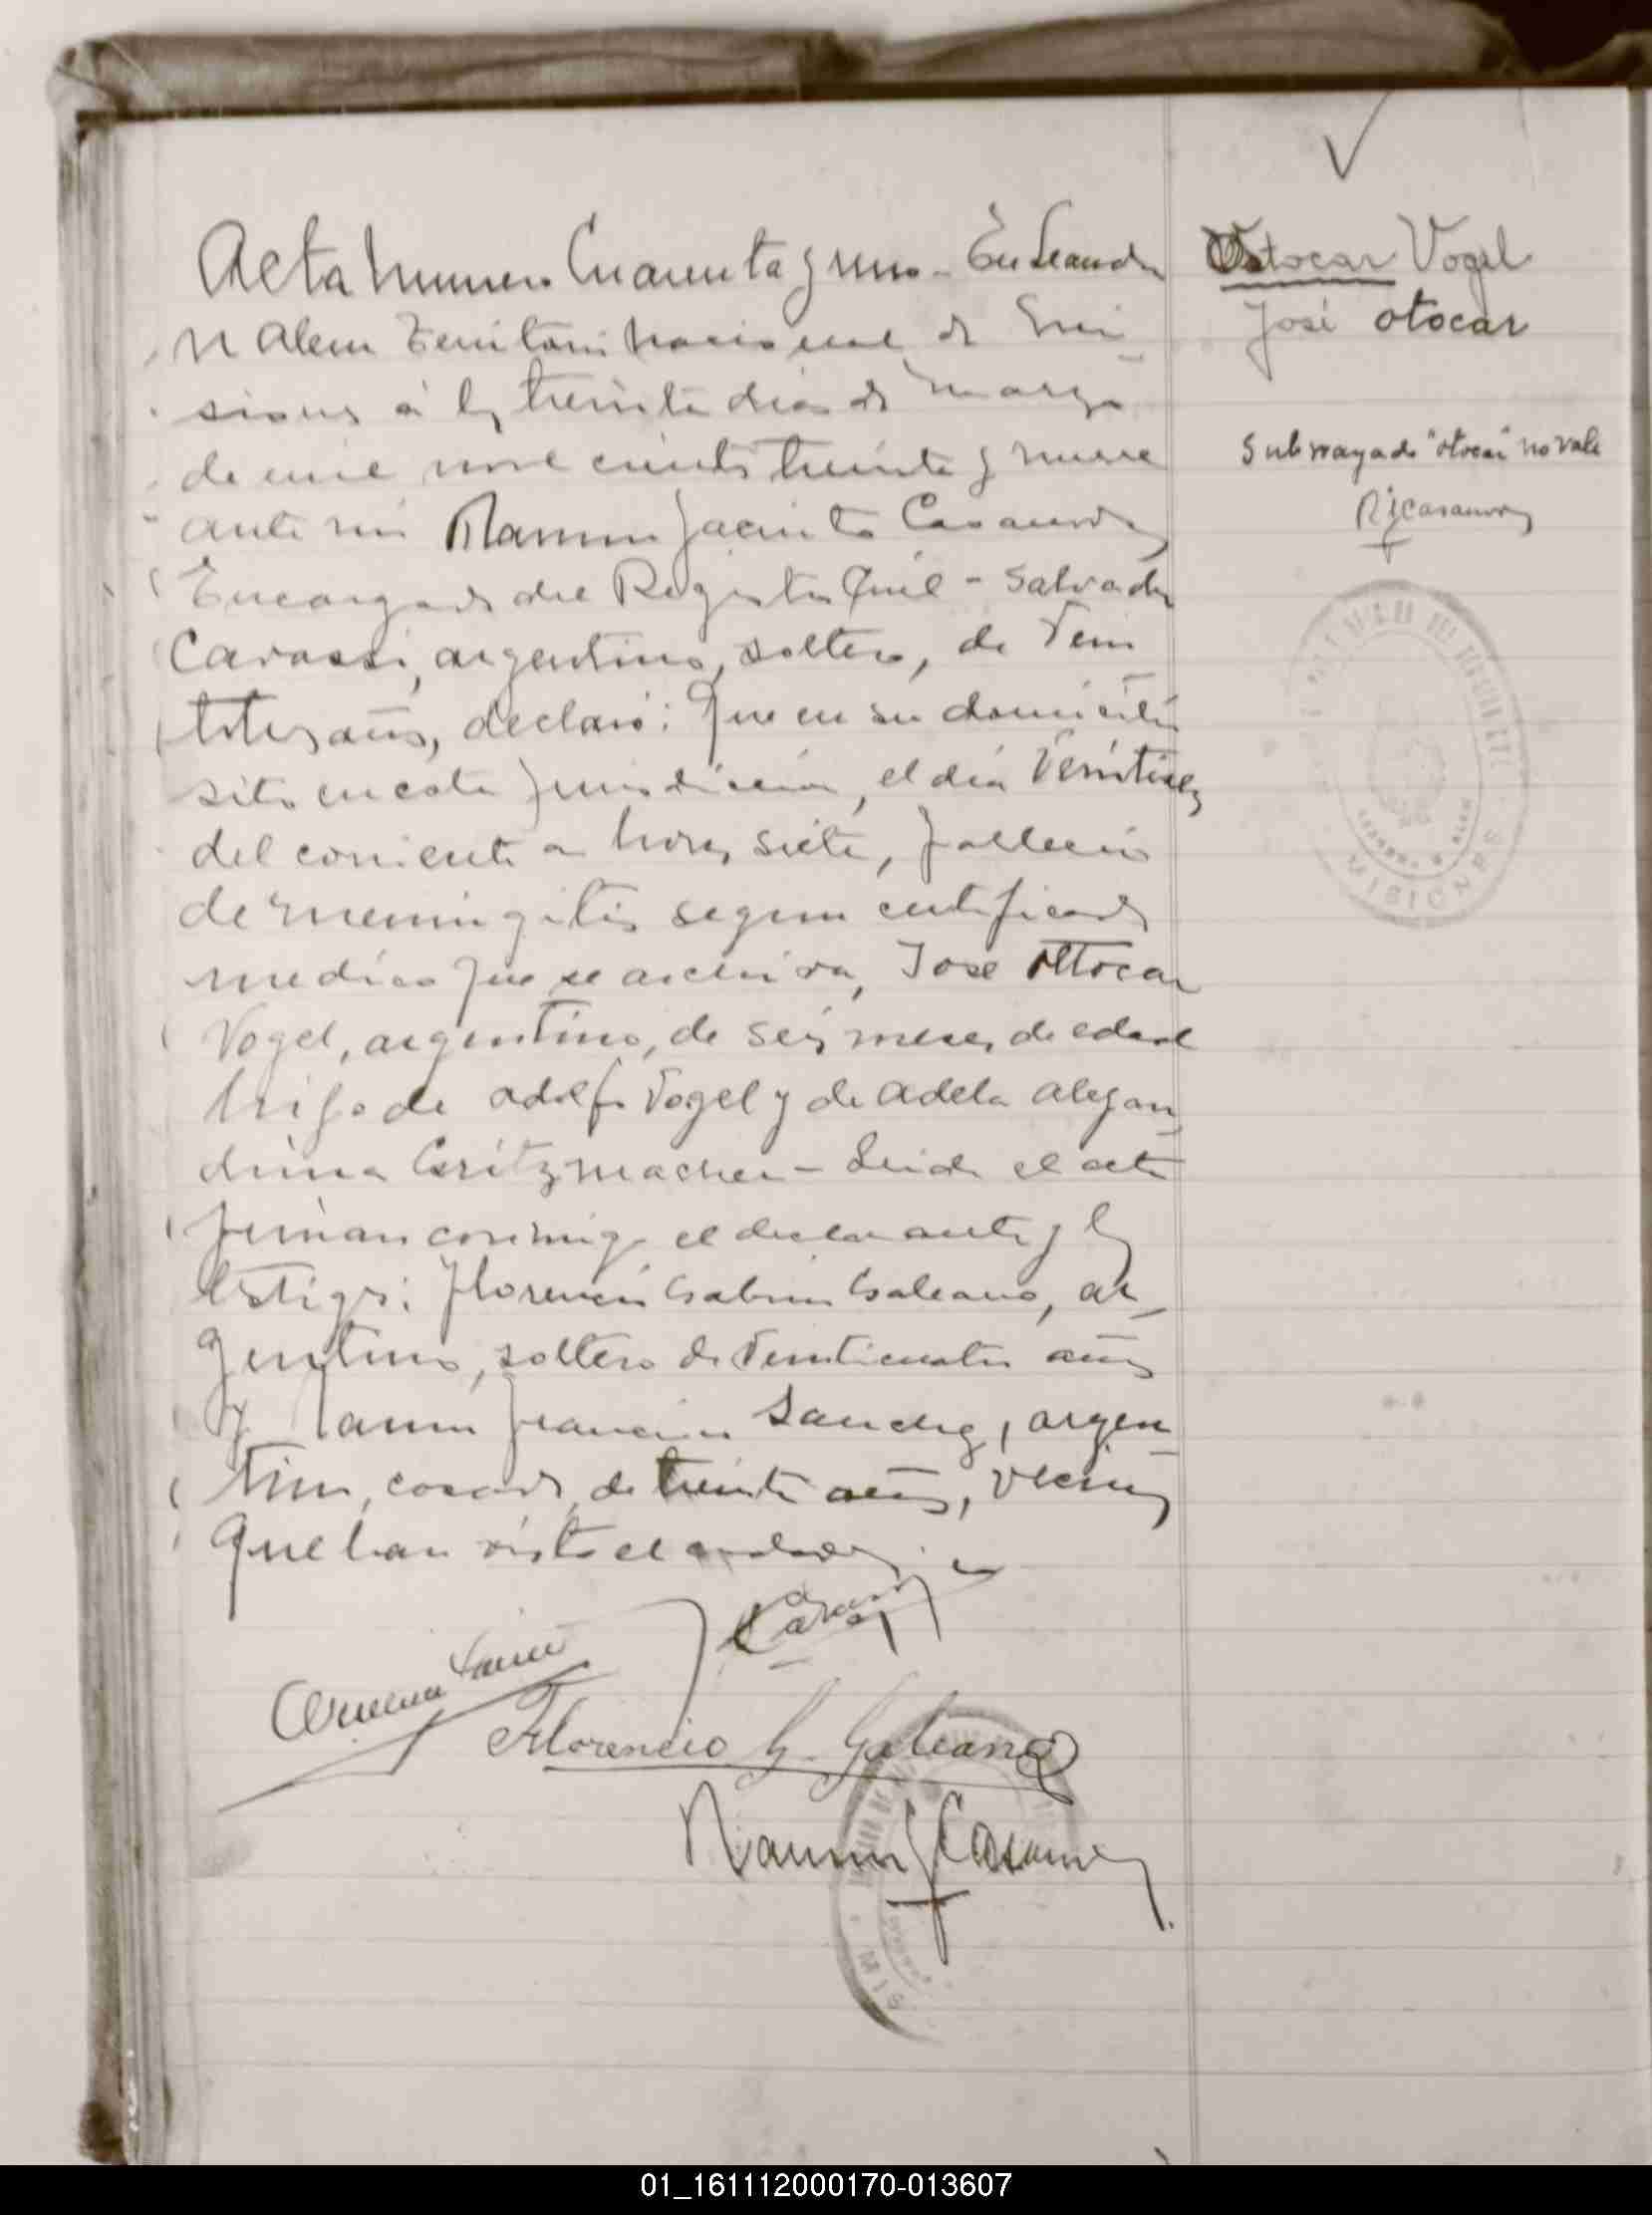 Acta Numero Cuarenta y uno - En Leandro
N Alem Territorio Nacional de Mi
siones á los treinta dias de Marzo
de mil novecientos treinta y nueve
ante mi Ramon Jacinto Casanova
Encargado del Registro Civil - Salvador
Carossi, argentino, soltero, de Vein
titres años, declaró: Que en su domicilio
sito en esta Jurisdiccion, el dia Veintiseis
del corriente a horas siete, fallecio
de meningitis segun certificado
medico que se archiva, Jose Ottocar
Vogel, argentino, de seis meses de edad
hijo de Adolfo Vogel y de Adela Alejan
drina Gritzmacher - Leida el acta
firman conmigo el declarante y los
testigos: Florencio Gabino Galeano, ar
gentino, soltero de Veinticuatro años
y Francisco Sanchez, argen
tino, casado, de treinta años, vecinos
que han visto el cadaver.
Florencio G. Galeano
Ramon J Casanova
Ostocar Vogel
José otocar
Subrayado "otocar" no vale
R J Casanova
MISIONES
01_161112000170-013607